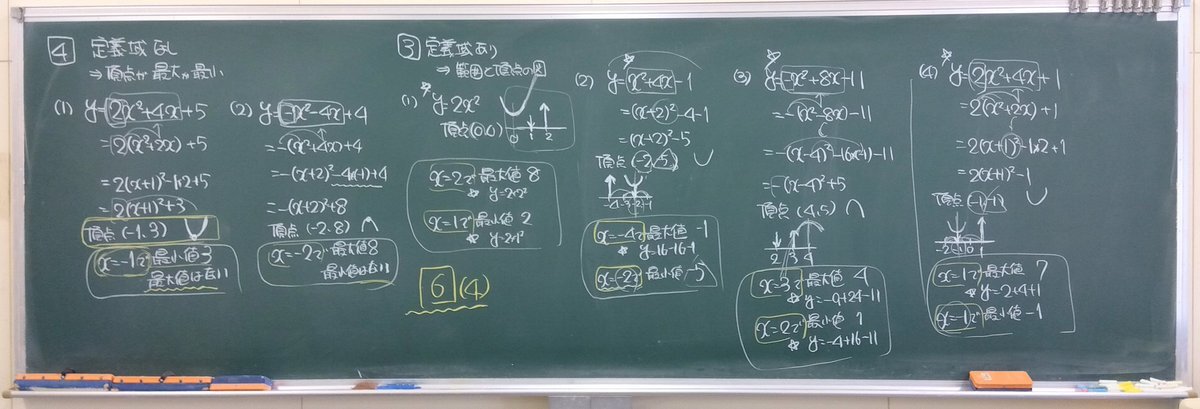 4 定義域なし
⇒頂点が最大か最小
(1) y=2x²+4x+5
=2(x²+2x)+5
=2(x+1)²-1×2+5
=2(x+1)²+3
頂点(-1,3)
x=-1で最小値3
最大値はない
(2) y=-x²-4x+4
=-(x²+4x)+4
=-(x+2)²-4×(-1)+4
=-(x+2)²+8
頂点(-2,8)
x=-2で最大値8
最小値はない
3 定義域あり
⇒範囲と頂点の図
(1) y=2x²
頂点(0,0)
0 1 2
x=2で最大値 8
☆ y=2×2²
x=1で最小値 2
☆ y=2×1²
6 (4)
(2) y=x²+4x-1
=(x+2)²-4-1
=(x+2)²-5
頂点(-2,-5)
-4 -3 -2 -1
x=-4で最大値 -1
☆ y=16-16-1
x=-2で最小値 -5
(3) y=-x²+8x-11
=-(x²-8x)-11
=-(x-4)²-16×(-1)-11
=-(x-4)²+5
頂点(4,5)
2 3 4
x=3で最大値 4
☆ y=-9+24-11
x=2で最小値 1
☆ y=-4+16-11
(4) y=2x²+4x+1
=2(x²+2x)+1
=2(x+1)²-1×2+1
=2(x+1)²-1
頂点(-1,-1)
-2 -1 0 1
x=1で最大値 7
☆ y=2+4+1
x=-1で最小値 -1